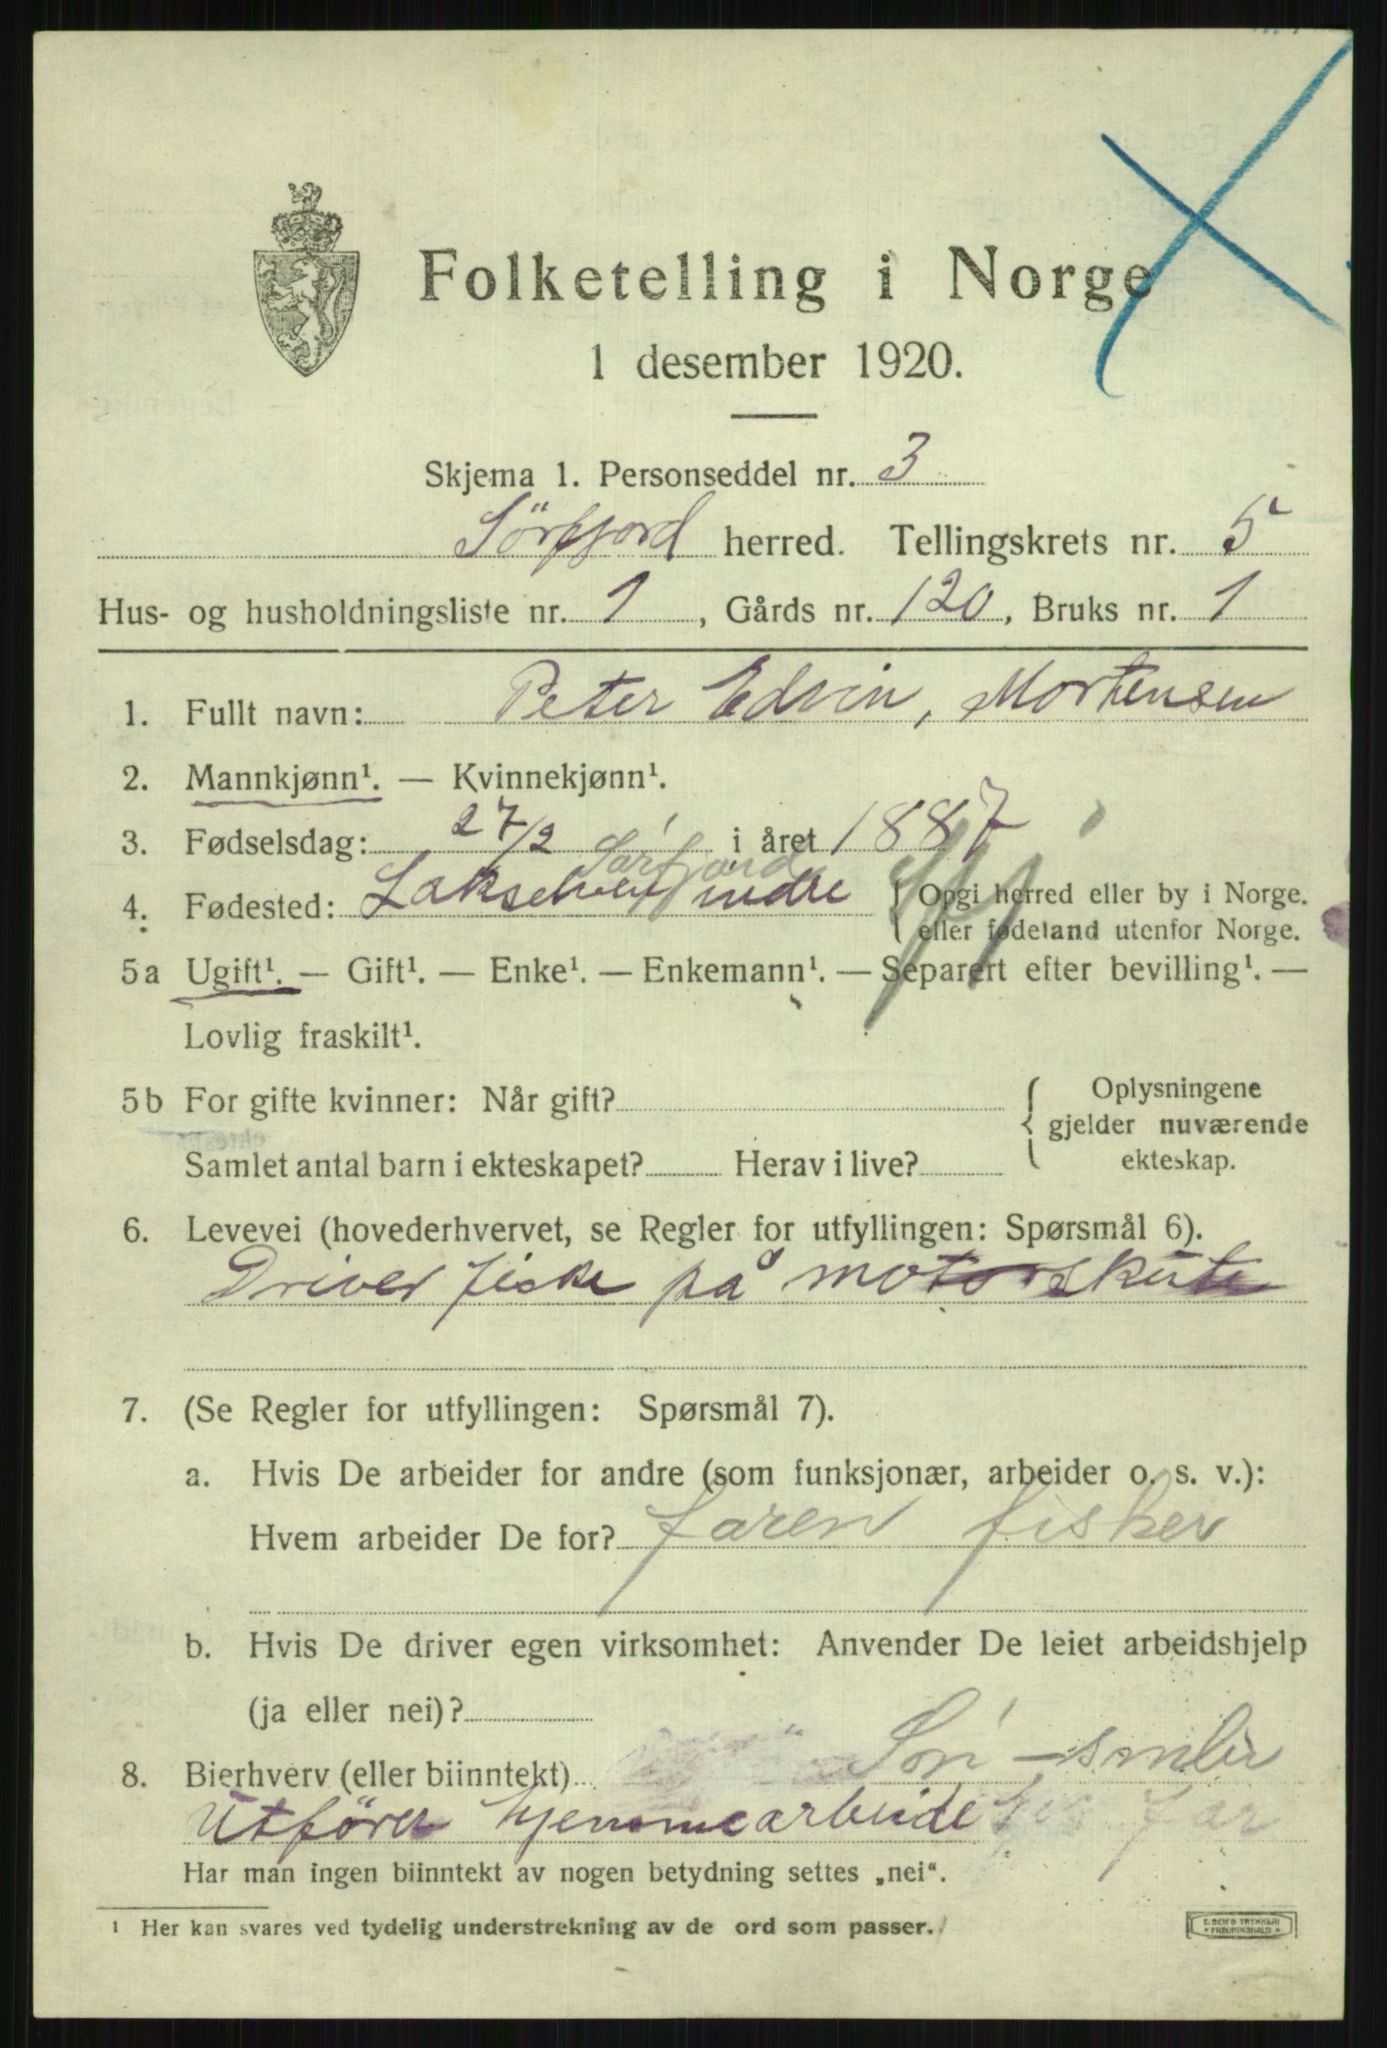 Folketelling i Norge
1 desember 1920.
Skjema 1. Personseddel nr. 3
Sörfjord herred. Tellingskrets nr. 5
Hus- og husholdningsliste nr. 1, Gårds nr. 120, Bruks nr. 1
1. Fullt navn: Peter Edvin, Mortensen
2. Mannkjønn¹. — Kvinnekjønn¹.
3. Fødselsdag: 27/2 i året 1887
Sörfjord
4. Fødested: Lakselven indre { Opgi herred eller by i Norge.
eller fødeland utenfor Norge.
5a Ugift¹. — Gift¹. — Enke¹. — Enkemann¹. — Separert efter bevilling¹. —
Lovlig fraskilt¹.
5b For gifte kvinner: Når gift? { Oplysningene
gjelder nuværende
Samlet antal barn i ekteskapet? Herav i live? ekteskap.
6. Levevei (hovederhvervet, se Regler for utfyllingen: Spørsmål 6).
Driver fiske på motorskute
7. (Se Regler for utfyllingen: Spørsmål 7).
a. Hvis De arbeider for andre (som funksjonær, arbeider o. s. v.):
Hvem arbeider De for? faren fisker
b. Hvis De driver egen virksomhet: Anvender De leiet arbeidshjelp
(ja eller nei)?
8. Bierhverv (eller biinntekt)
Utfører hjemmearbeide far
Har man ingen biinntekt av nogen betydning settes „nei“.
¹ Her kan svares ved tydelig understrekning av de ord som passer.